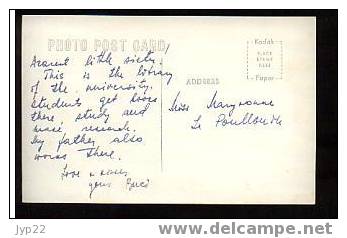 PHOTO POST CARD
Kodak
PLACE
STAMP
HERE
Paper
ADDRESS
Dearest little sister
This is the library
of the university.
Students get books
there study and
make research.
My father also
works there.
Love & kisses
your
Miss Maryvonne
Le
jyp22
www.delcampe.net